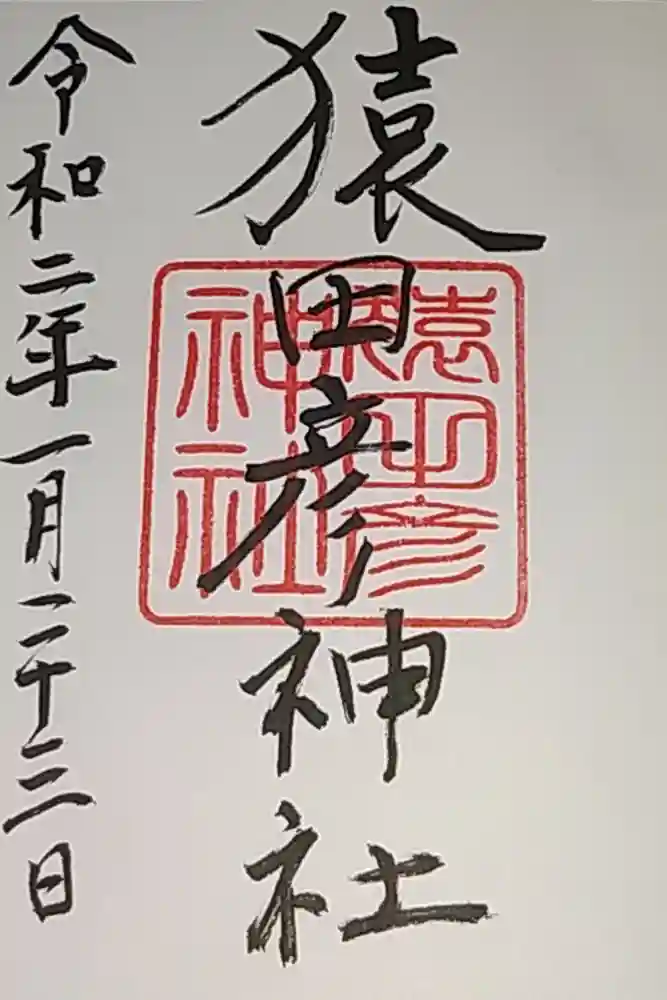 猿田彦神社
猿田彦
神社
令和二年一月二十三日